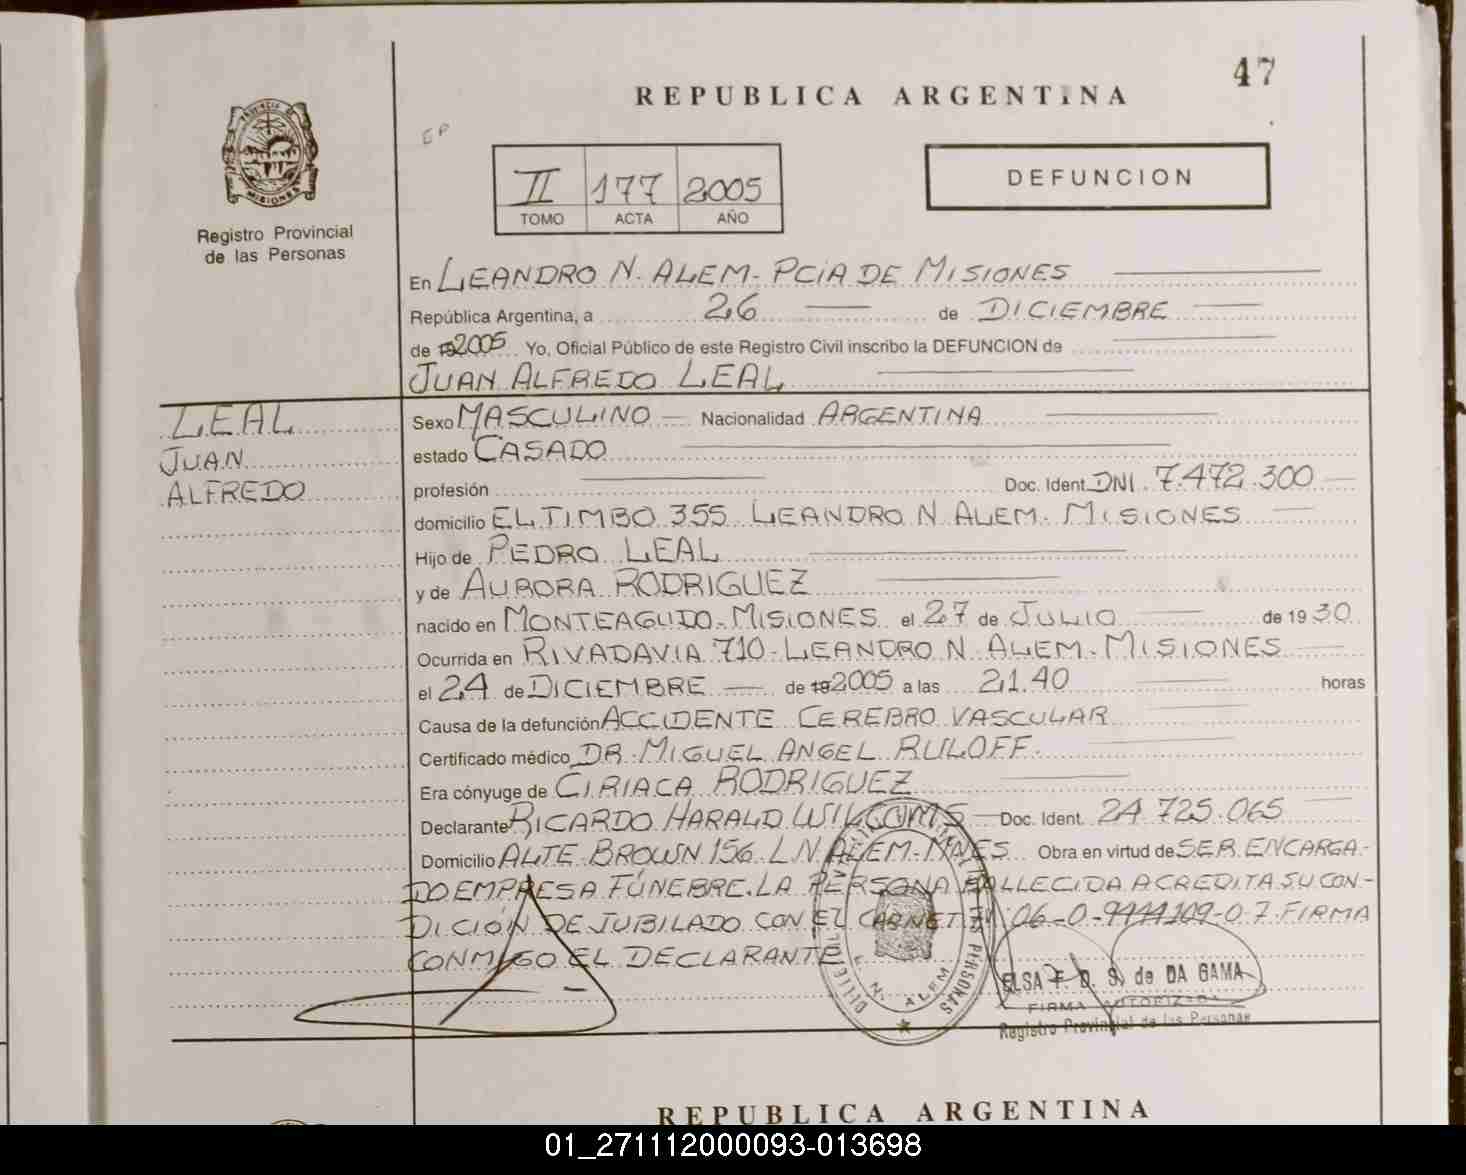 47
REPUBLICA ARGENTINA
EP
PROVINCIA DE
MISIONES
Registro Provincial
de las Personas
II 177 2005
TOMO ACTA AÑO
DEFUNCION
En LEANDRO N. ALEM - PCIA DE MISIONES
República Argentina, a 26 de DICIEMBRE
de 19 2005 Yo, Oficial Público de este Registro Civil inscribo la DEFUNCION de
JUAN ALFREDO LEAL
LEAL
JUAN
ALFREDO
Sexo MASCULINO Nacionalidad ARGENTINA
estado CASADO
profesión Doc. Ident. DNI 7.472.300
domicilio EL TIMBO 355 LEANDRO N. ALEM - MISIONES
Hijo de PEDRO LEAL
y de AURORA RODRIGUEZ
nacido en MONTEAGUDO - MISIONES el 27 de JULIO de 1930
Ocurrida en RIVADAVIA 710 - LEANDRO N. ALEM - MISIONES
el 24 de DICIEMBRE de 19 2005 a las 21.40 horas
Causa de la defunción ACCIDENTE CEREBRO VASCULAR
Certificado médico DR. MIGUEL ANGEL RULOFF.
Era cónyuge de CIRIACA RODRIGUEZ
Declarante RICARDO HARALD Doc. Ident. 24.725.065
Domicilio ALTE. BROWN 156 L N ALEM - MNES Obra en virtud de SER ENCARGA-
DO EMPRESA FÚNEBRE. LA PERSONA FALLECIDA ACREDITA SU CON-
DICIÓN DE JUBILADO CON EL CARNET Nº 06-0- -0.7. FIRMA
CONMIGO EL DECLARANTE
PERSONAS
N. ALEM
ELSA F. D. S. de DA GAMA
FIRMA AUTORIZADA
Registro Provincial de las Personas
REPUBLICA ARGENTINA
01_271112000093-013698